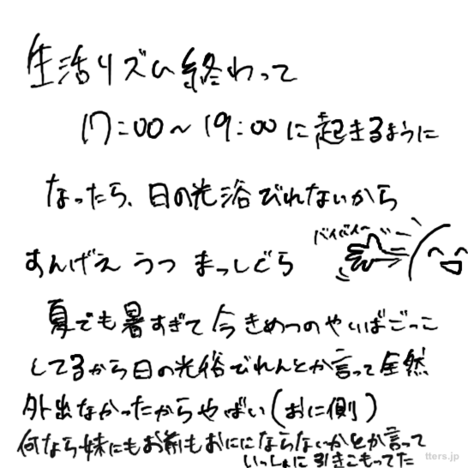 生活リズム終わって
17:00〜19:00に起きるように
なったら、日の光浴びれないから
すんげえ うつ まっしぐら
バイバイー
夏でも暑すぎて今きめつのやいばごっこ
してるから日の光浴びれんとか言って全然
外出なかったからやばい(おに側)
何なら妹にもお前もおににならないかとか言って
いっしょに引きこもってた
tters.jp